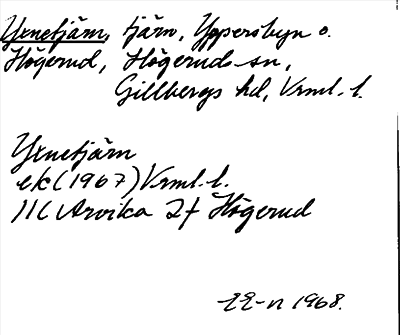 Yxnetjärn, tjärn, Yppersbyn o.
Högerud, Högeruds sn,
Gillbergs hd, Vrml. l.
Yxnetjärn
ek (1967) Vrml. l.
11C Arvika 2f Högerud
1968.